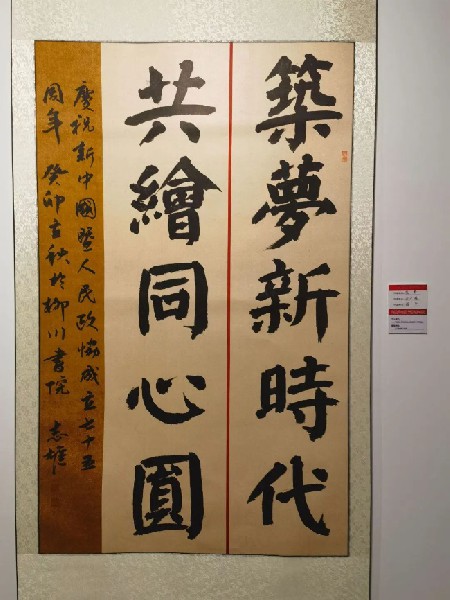 築夢新時代
共繪同心圓
慶祝新中國暨人民政協成立七十五
周年 癸卯吉秋於柳川書院 志雄